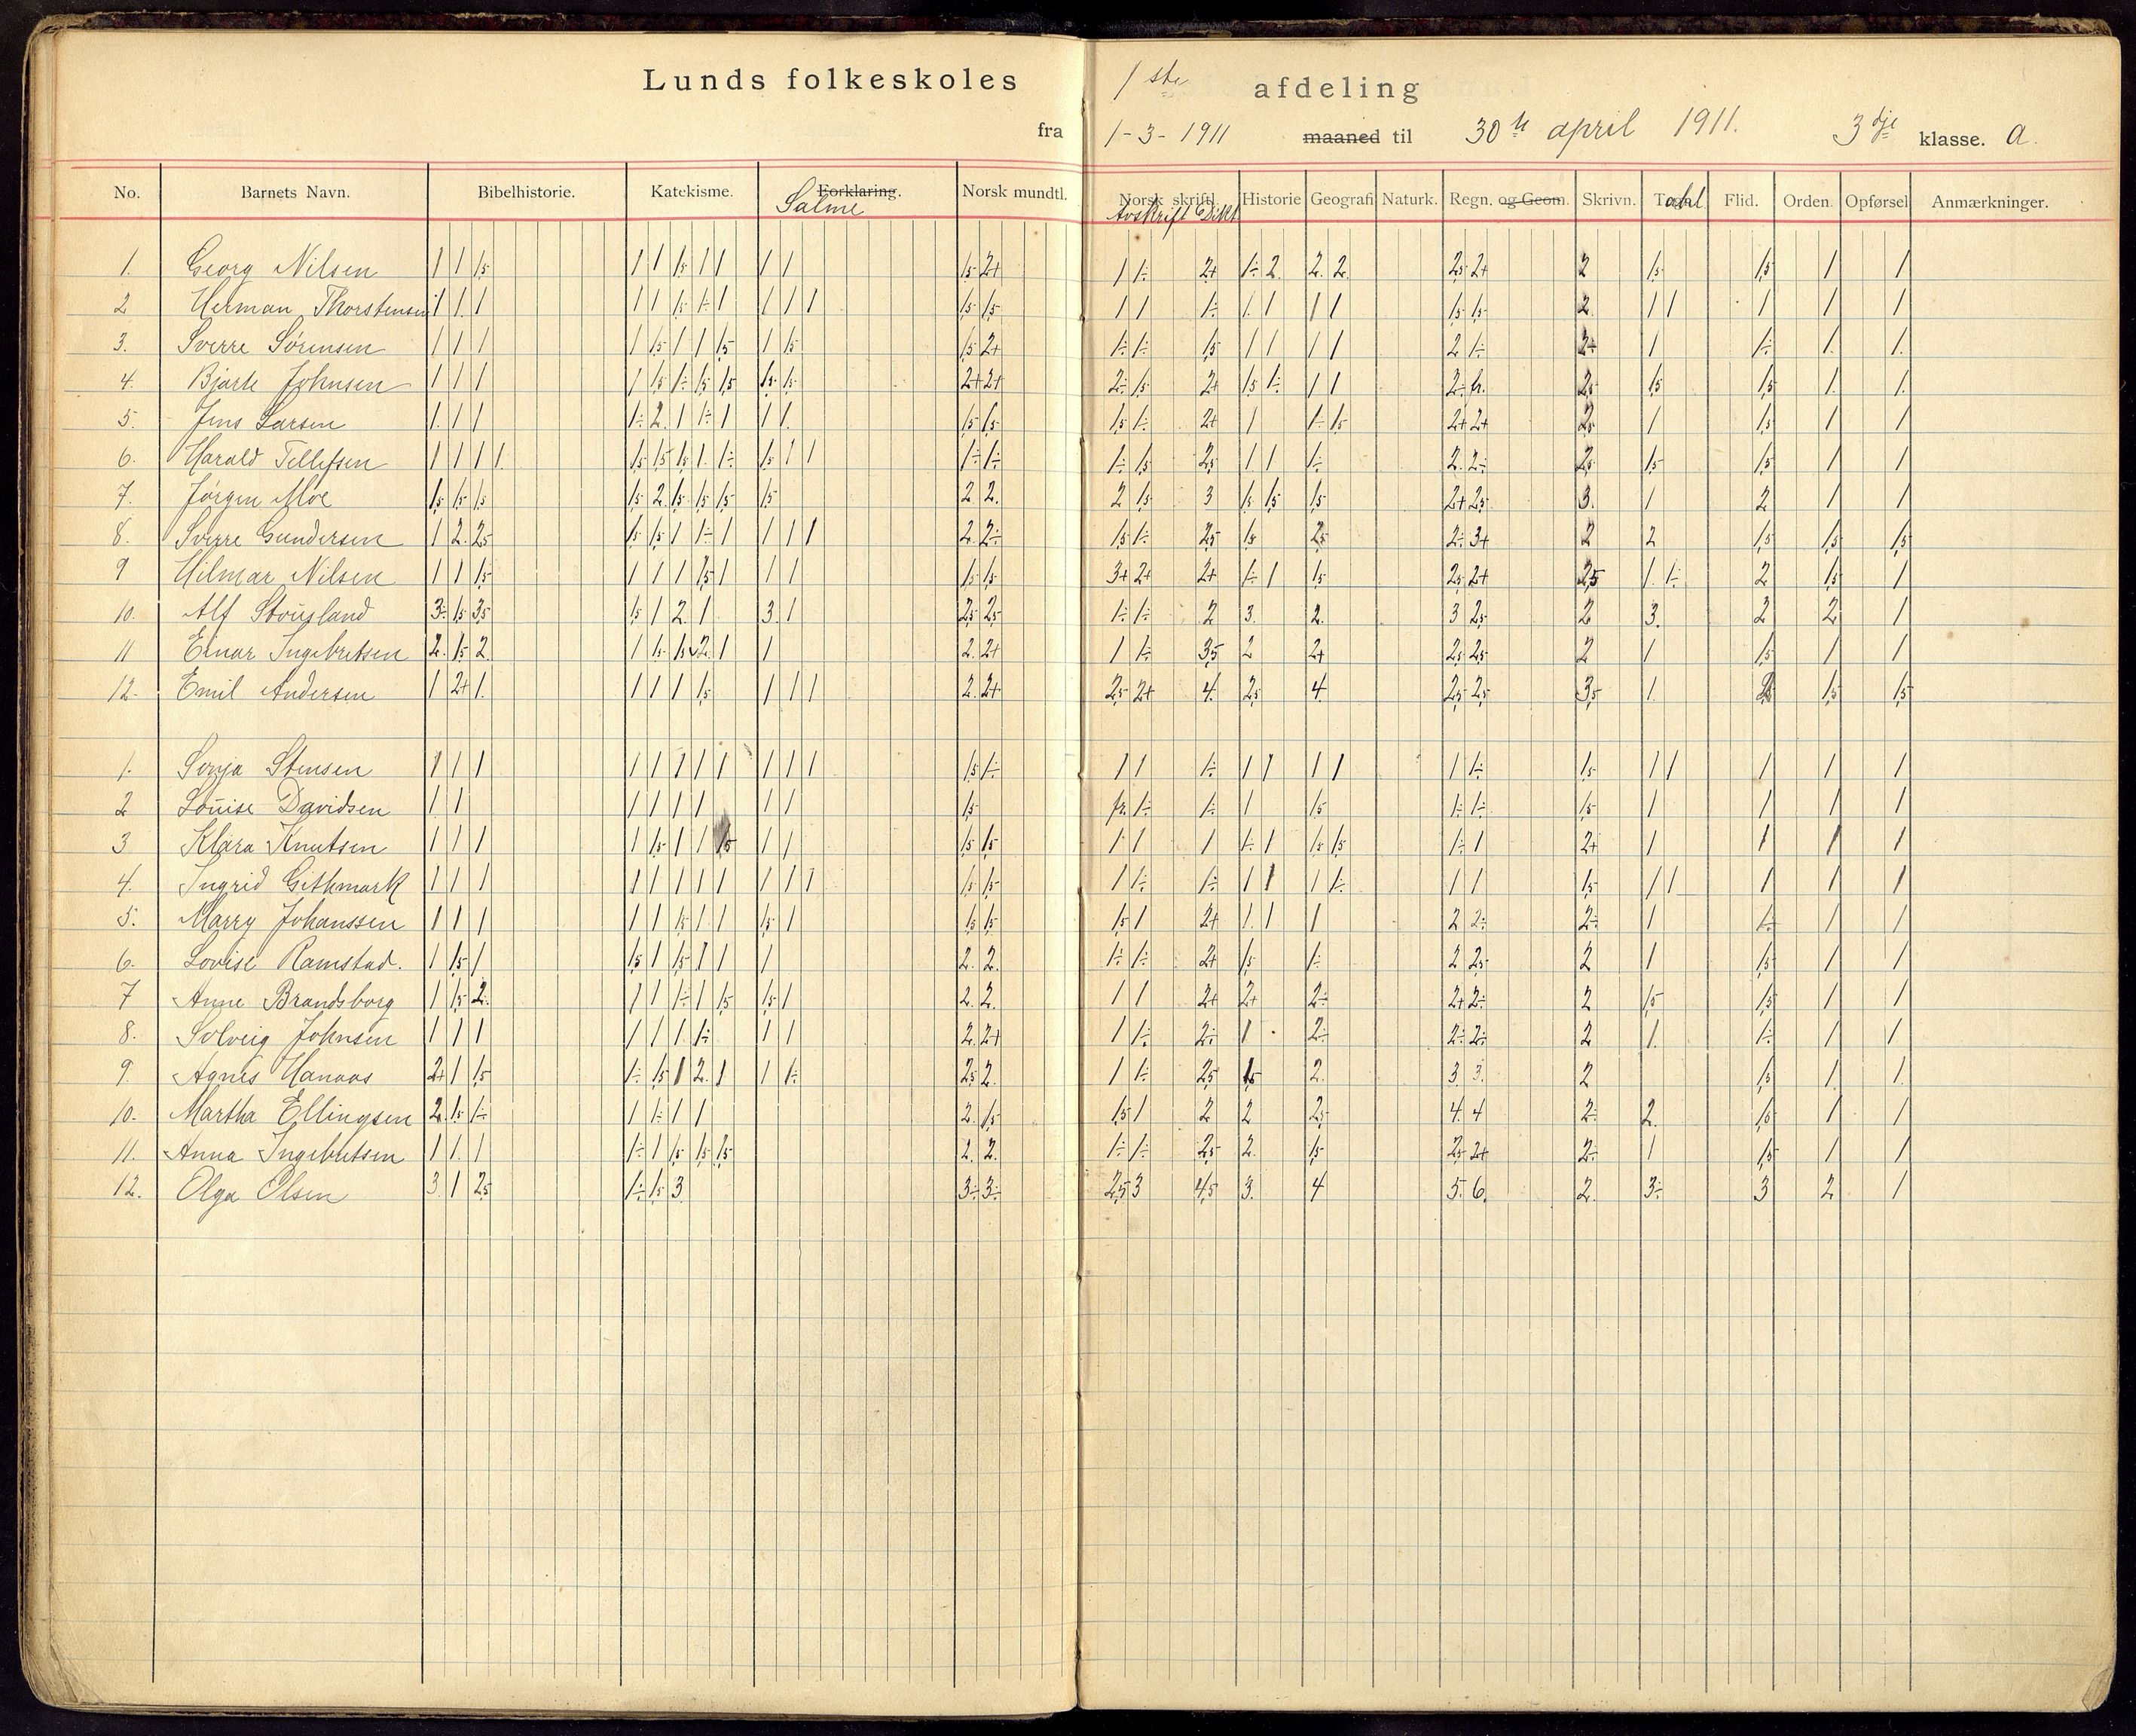 Lunds folkeskoles 1ste afdeling
fra 1-3-1911 maaned til 30te april 1911. 3dje klasse. a.
No. Barnets Navn. Bibelhistorie. Katekisme. Forklaring. Norsk mundtl. Norsk skriftl. Historie Geografi Naturk. Regn. og Geom. Skrivn. Tegn. Flid. Orden. Opførsel Anmærkninger.
Salme Avskrift Dikt
1. Georg Nilsen 1 1 1,5 1 1 1,5 1 1 1 1 1,5 2+ 1 1÷ 2+ 1÷ 2. 2. 2. 2,5 2+ 2 1,5 1,5 1 1
2 Herman Thorstensen 1 1 1 1 1 1,5 1÷ 1 1 1 1 1,5 1,5 1 1 1÷ 1 1 1 1 1,5 1,5 2. 1 1 1 1 1
3. Sverre Sørensen 1 1 1 1 1,5 1 1 1,5 1 1,5 1,5 2+ 1÷ 1÷ 1,5 1 1 1 1 2 1÷ 2+ 1 1÷ 1. 1.
4. Bjarte Johnsen 1 1 1 1 1,5 1÷ 1,5 1,5 1,5 1,5 2+ 2+ 2÷ 1,5 2+ 1,5 1÷ 1 1 2÷ fr. 2,5 1,5 1,5 1. 1.
5. Jens Larsen 1. 1 1 1÷ 2. 1 1÷ 1 1 1. 1,5 1,5 1,5 1÷ 2+ 1 1÷ 1,5 2+ 2+ 2,5 1 1,5 1 1
6. Harald Tellefsen 1 1 1 1. 1,5 1,5 1,5 1. 1÷ 1,5 1 1 1÷ 1÷ 1÷ 1,5 2,5 1 1 1÷ 2. 2÷ 2,5 1,5 1,5 1 1
7. Jørgen Moe 1,5 1,5 1,5 1,5 2. 1,5 1,5 1,5 1,5 2. 2. 2 1,5 3 1,5 1,5 1,5 2+ 2,5 3. 1 2 1 1
8. Sverre Gundersen 1 2. 2,5 1,5 1,5 1 1÷ 1 1 1 1 2. 2÷ 1,5 1÷ 2,5 1,5 2,5 2÷ 3+ 2 2 1,5 1,5 1,5
9 Hilmar Nilsen 1 1 1,5 1 1 1 1,5 1 1 1 1,5 1,5 3+ 2+ 2+ 1÷ 1 1,5 2,5 2+ 2,5 1. 1÷ 2 1,5 1
10. Alf Stousland 3÷ 1,5 3,5 1,5 1 2. 1 3. 1 2,5 2,5 1÷ 1÷ 2 3. 2. 3 2,5 2 3. 2 2 1
11 Einar Ingebretsen 2. 1,5 2. 1 1,5 1,5 2. 1 1 2. 2+ 1 1÷ 3,5 2 2+ 2,5 2,5 2 1 1,5 1 1
12. Emil Andersen 1 2+ 1. 1 1 1 1,5 1 1 1 2. 2+ 2,5 2+ 4. 2,5 4. 2,5 2,5 3,5 1. 2 1,5 1,5
1. Sonja Stensen 1 1 1 1 1 1 1 1 1 1 1 1,5 1÷ 1 1 1÷ 1 1 1 1 1 1÷ 1,5 1 1 1 1 1
2 Louise Davidsen 1 1 1 1 1 1 1 1 1,5 fr. 1÷ 1÷ 1 1,5 1÷ 1÷ 1,5 1 1 1 1
3 Klara Knutsen 1 1 1 1 1,5 1 1 1,5 1 1 1,5 1,5 1 1 1 1÷ 1 1,5 1,5 1÷ 1 2+ 1 1 1 1
4. Ingrid Githmark 1 1 1 1 1 1 1 1 1 1 1 1,5 1,5 1 1÷ 1÷ 1 1 1 1÷ 1 1 1,5 1 1 1 1 1
5. Marry Johanssen 1 1 1 1 1 1,5 1 1 1,5 1 1,5 1,5 1,5 1 2+ 1. 1 1 2 2÷ 2÷ 1 1÷ 1 1
6. Lovise Ramstad. 1 1,5 1 1,5 1 1,5 1 1 1 2. 2. 1÷ 1÷ 2+ 1,5 1÷ 2 2,5 2 1 1,5 1 1
7 Anne Brandsborg 1 1,5 2. 1 1 1÷ 1 1,5 1,5 1 2. 2. 1 1 2+ 2+ 2÷ 2+ 2÷ 2 1,5 1,5 1 1
8. Solveig Johnsen 1 1 1 1 1 1 1÷ 1 1 2. 2+ 1 1÷ 2÷ 1 2÷ 2÷ 2÷ 2 1. 1÷ 1 1
9. Agnes Hanaas 2+ 1 1,5 1÷ 1,5 1 2. 1 1 1÷ 2,5 2. 1 1÷ 2,5 1,5 2. 3. 3. 2 1,5 1 1.
10. Martha Ellingsen 2. 1,5 1÷ 1 1÷ 1 1 2. 1,5 1,5 1 2 2 2,5 4. 4 2÷ 2. 1,5 1 1
11. Anna Ingebretsen 1 1. 1 1÷ 1 1,5 1,5 1,5 2. 2. 1÷ 1÷ 2,5 2. 1,5 2,5 2+ 2÷ 1 1,5 1 1
12. Olga Olsen 3. 1 2,5 1÷ 1,5 3. 3÷ 3÷ 2,5 3 4,5 3. 4 5. 6. 2. 3÷ 3 2 1